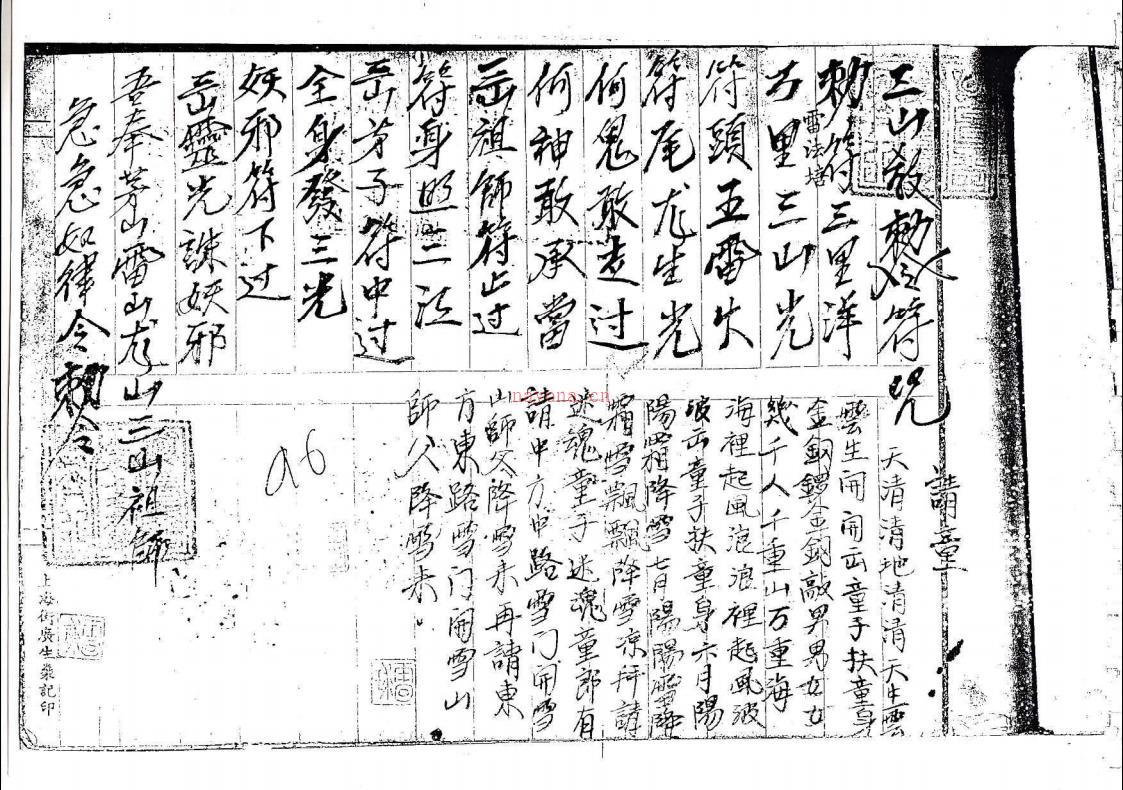 三山教勅令符咒
勅符三里洋
雷法壇
方里三山光
符頭五雷火
符尾尤生光
何鬼敢走过
何神敢承當
岳祖師符止过
符身照三江
岳方子符中过
全身發三光
妖邪符下过
岳靈光誅妖邪
吾奉茅山雷山龙山三山祖師
急急如律令勅令
請童
天清清地清清天生雲
雲生開開岳童子扶童身
金銅鑼金銅敲男男女女
幾千人千重山万重海
海裡起風浪浪裡起風波
波岳童子扶童身六月陽
陽霜降雪七月陽陽霜降
霜雪飄飄降雪凉拜請
迷魂童子迷魂童郎有
請中方中路雪门開雪
山師父降雪来再請東
方東路雪门開雪山
師父降雪来
a6
上海街廣生榮記印
nayona.cn